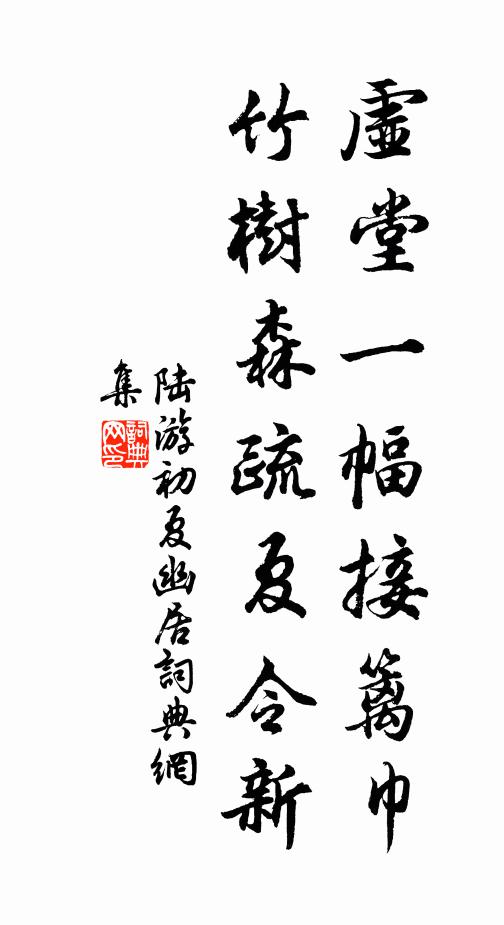 虛堂一幅接籬巾
竹樹森疏夏令新
陸游初夏幽居詞典網
集
詞典网印